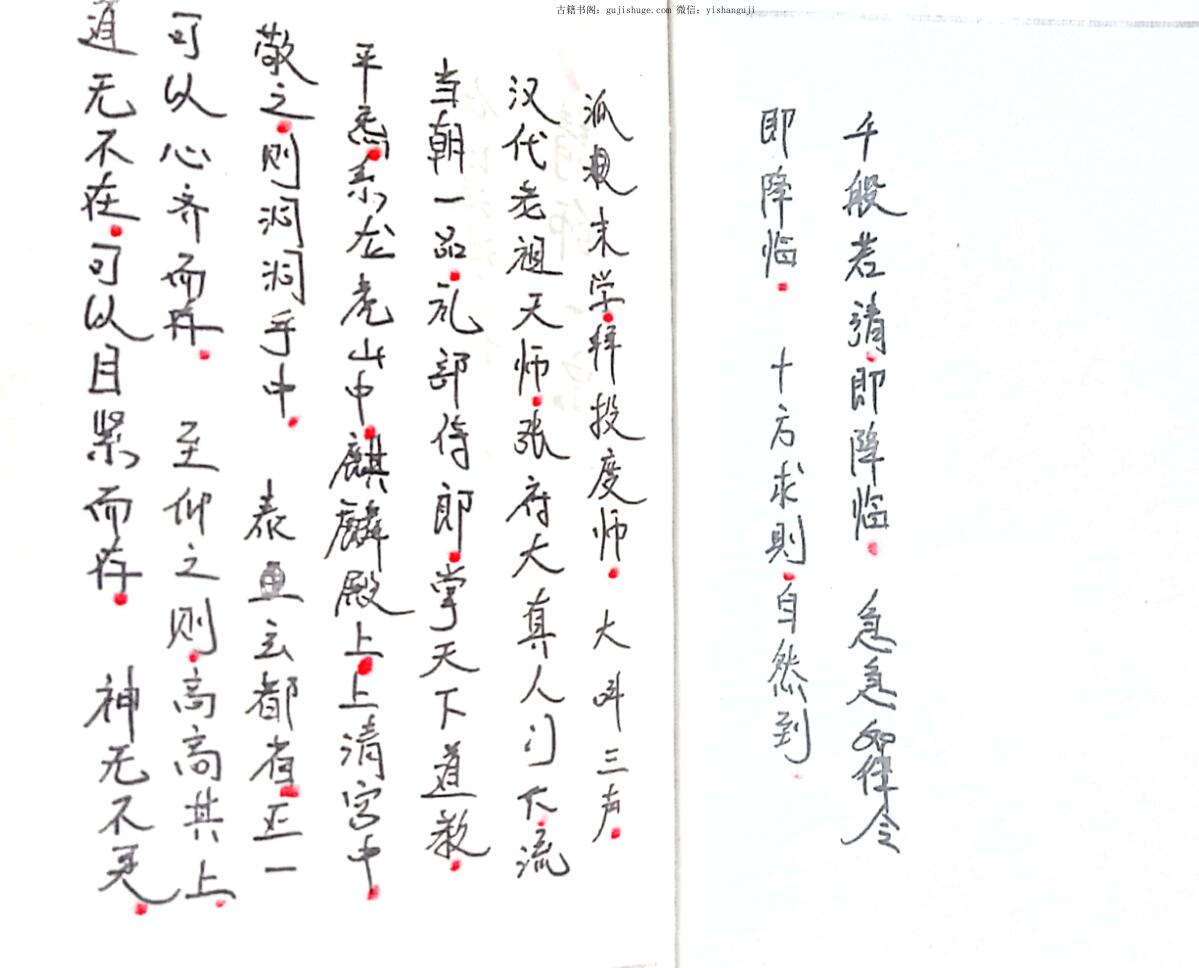 古籍书阁：gujishuge.com 微信：yishanguji
千般若请即降临 急急如律令
即降临 十方求则自然到
派未学拜投度师 大叫三声
汉代老祖天师张府大真人门下流
当朝一品礼部侍郎掌天下道教
平龙虎山中麒麟殿上上清宫中
敬之则洞洞乎中 泰玄都省正一
可以心齐而存 至仰之则高高其上
道无不在可以目紧而存 神无不灵